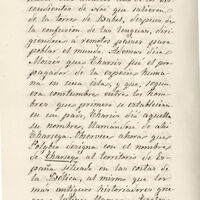 cendientes de Noé que salieron
de la torre de Babel, despues de
la confusion de las lenguas, diri-
giendose á remotos paises para
poblar el mundo. Ademas dice
Moises que Tharsis fué el pro-
pagador de la especie huma-
na en sus islas, y que, segun
era costumbre entre los hom-
bres que primero se establecian
en un pais, Tharsis dio aquella
su nombre, llamandose de ahi
Tharseya. Tenemos ahora que
Polybio designa con el nombre
de Tharseyo, al territorio de Es-
paña situado en las costas de
la Bética, al mismo que los
mas antiguos historiadores que